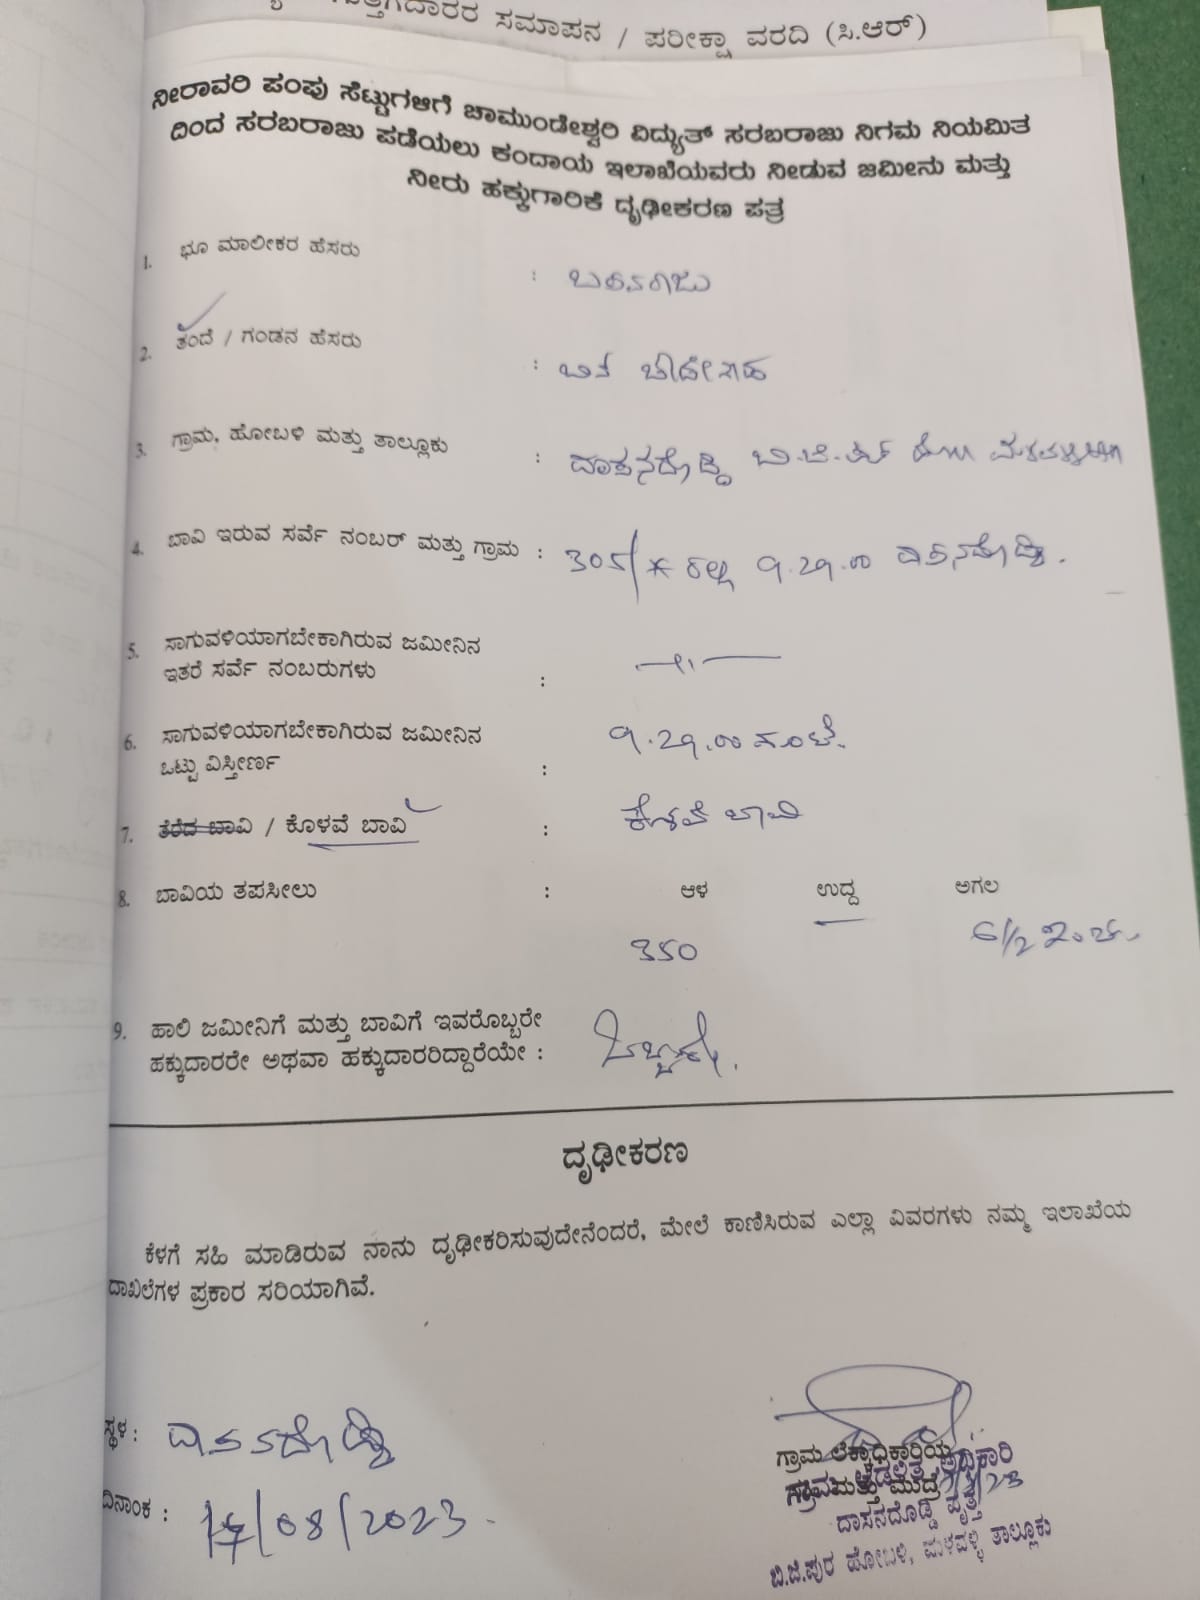 ಗುತ್ತಿಗೆದಾರರ ಸಮಾಪನ / ಪರೀಕ್ಷಾ ವರದಿ (ಸಿ.ಆರ್)
ನೀರಾವರಿ ಪಂಪು ಸೆಟ್ಟುಗಳಿಗೆ ಚಾಮುಂಡೇಶ್ವರಿ ವಿದ್ಯುತ್ ಸರಬರಾಜು ನಿಗಮ ನಿಯಮಿತ
ದಿಂದ ಸರಬರಾಜು ಪಡೆಯಲು ಕಂದಾಯ ಇಲಾಖೆಯವರು ನೀಡುವ ಜಮೀನು ಮತ್ತು
ನೀರು ಹಕ್ಕುಗಾರಿಕೆ ದೃಢೀಕರಣ ಪತ್ರ
1. ಭೂ ಮಾಲೀಕರ ಹೆಸರು : ಬಸವರಾಜು
2. ತಂದೆ / ಗಂಡನ ಹೆಸರು : ಬಿನ್
3. ಗ್ರಾಮ, ಹೋಬಳಿ ಮತ್ತು ತಾಲ್ಲೂಕು : ದಾಸನದೊಡ್ಡಿ ಬಿ.ಜಿ.ಪುರ
4. ಬಾವಿ ಇರುವ ಸರ್ವೆ ನಂಬರ್ ಮತ್ತು ಗ್ರಾಮ : 305/* ರಲ್ಲಿ 1.21.00 ದಾಸನದೊಡ್ಡಿ.
5. ಸಾಗುವಳಿಯಾಗಬೇಕಾಗಿರುವ ಜಮೀನಿನ
ಇತರೆ ಸರ್ವೆ ನಂಬರುಗಳು :
6. ಸಾಗುವಳಿಯಾಗಬೇಕಾಗಿರುವ ಜಮೀನಿನ
ಒಟ್ಟು ವಿಸ್ತೀರ್ಣ : 1.21.00 ಗುಂಟೆ.
7. ತೆರೆದ ಬಾವಿ / ಕೊಳವೆ ಬಾವಿ : ಕೊಳವೆ ಬಾವಿ
8. ಬಾವಿಯ ತಪಸೀಲು : ಆಳ ಉದ್ದ ಅಗಲ
350 6 1/2 ಇಂಚು.
9. ಹಾಲಿ ಜಮೀನಿಗೆ ಮತ್ತು ಬಾವಿಗೆ ಇವರೊಬ್ಬರೇ
ಹಕ್ಕುದಾರರೇ ಅಥವಾ ಹಕ್ಕುದಾರರಿದ್ದಾರೆಯೇ : ಒಬ್ಬರೇ.
ದೃಢೀಕರಣ
ಕೆಳಗೆ ಸಹಿ ಮಾಡಿರುವ ನಾನು ದೃಢೀಕರಿಸುವುದೇನೆಂದರೆ, ಮೇಲೆ ಕಾಣಿಸಿರುವ ಎಲ್ಲಾ ವಿವರಗಳು ನಮ್ಮ ಇಲಾಖೆಯ
ದಾಖಲೆಗಳ ಪ್ರಕಾರ ಸರಿಯಾಗಿವೆ.
ಸ್ಥಳ : ದಾಸನದೊಡ್ಡಿ
ದಿನಾಂಕ : 17/08/2023
ಗ್ರಾಮ ಲೆಕ್ಕಾಧಿಕಾರಿಯ
ಮತ್ತು ಮುದ್ರೆ
ಗ್ರಾಮ ಆಡಳಿತ ಅಧಿಕಾರಿ
ದಾಸನದೊಡ್ಡಿ ವೃತ್ತ
ಬಿ.ಜಿ.ಪುರ ಹೋಬಳಿ, ಮಳವಳ್ಳಿ ತಾಲ್ಲೂಕು